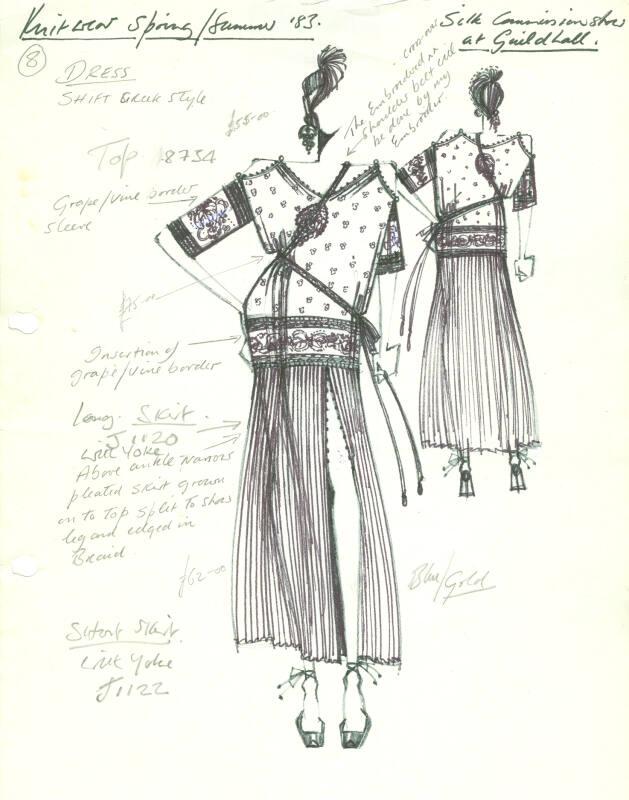 Knitwear Spring/Summer '83.
Silk Commission show
at Guildhall.
8
DRESS
SHIFT GREEK STYLE
£55-00
The Embroidered
shoulder belt will
be done by my
Embroider.
Top 8734
Grape/vine border
sleeve
£75-00
Insertion of
grape/vine border
Long. Skirt.
J1120
Link Yoke
Above ankle narrow
pleated skirt grown
on to Top Split To show
leg and edged in
Braid.
£62-00
Blue/Gold
Short Skirt.
Link Yoke
J1122